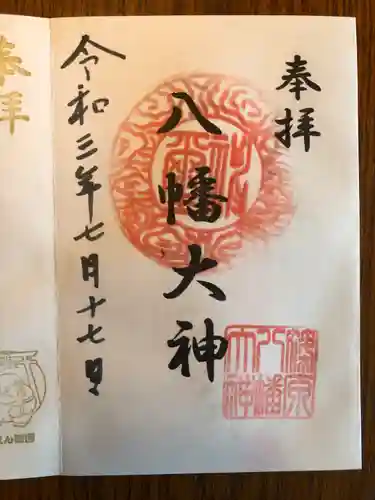 奉拝
八幡大神
令和三年七月十七日
奉拝